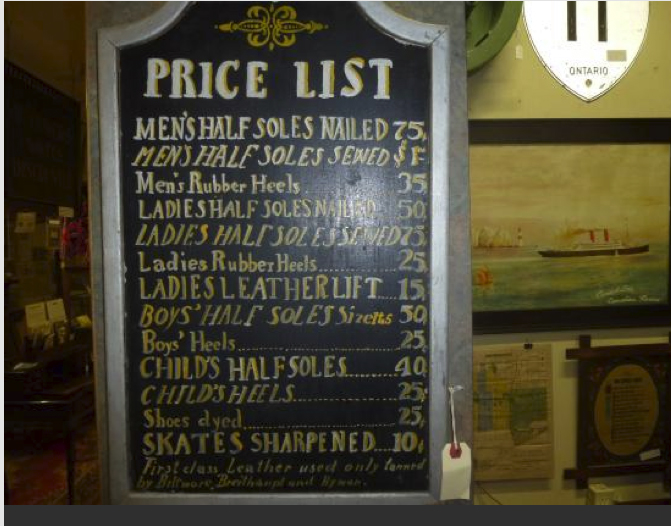 PRICE LIST
MEN'S HALF SOLES NAILED 75¢
MEN'S HALF SOLES SEWED $1
Men's Rubber Heels. 35
LADIES HALF SOLES NAILED 50
LADIES HALF SOLES SEWED 75
Ladies Rubber Heels...... 25
LADIES LEATHER LIFT.... 15¢
BOYS' HALF SOLES 50
Boys' Heels................ 25
CHILD'S HALF SOLES....... 40
CHILD'S HEELS............ 25¢
Shoes dyed................ 25¢
SKATES SHARPENED... 10¢
First class Leather used only tanned
by Breithaupt and
ONTARIO